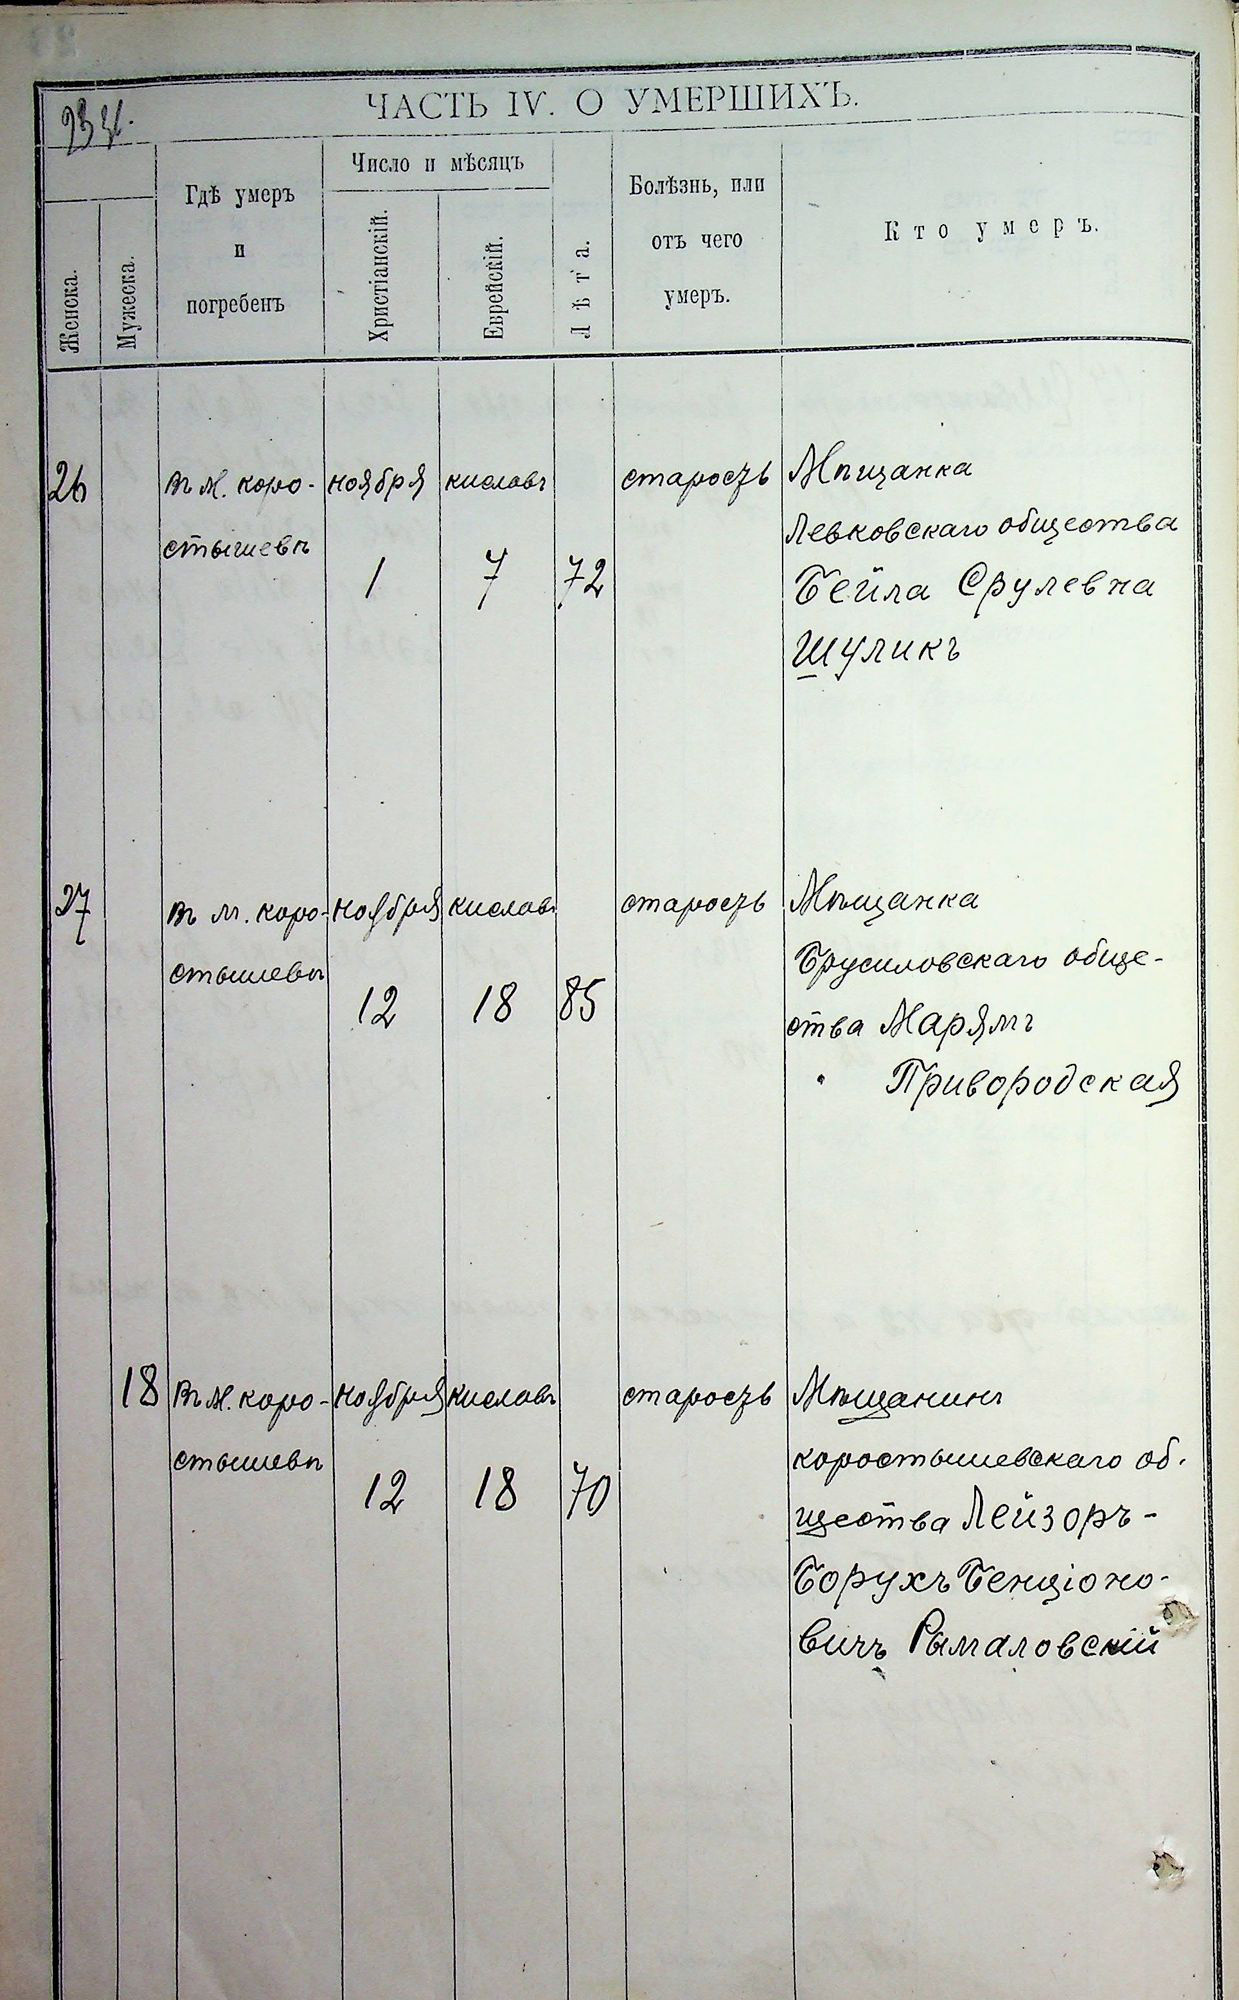 ЧАСТЬ IV. О УМЕРШИХЪ.
Женска.
Мужеска.
Гдѣ умеръ
и
погребенъ
Число и мѣсяцъ
Христіанскій.
Еврейскій.
Лѣта.
Болѣзнь, или
отъ чего
умеръ.
Кто умеръ.
26 въ М. коро- ноября кислевъ старость Мѣщанка
стышевѣ Левковскаго общества
1 7 72 Бейла Срулевна
Шуликъ
27 въ м. коро- ноября кислевъ старость Мѣщанка
стышевѣ Брусиловскаго обще-
12 18 85 ства Марямъ
Привородская
18 въ М. коро- ноября кислевъ старость Мѣщанинъ
стышевѣ коростышевскаго об-
12 18 70 щества Лейзоръ-
Борухъ Бенціоно-
вичъ Рымаловскій